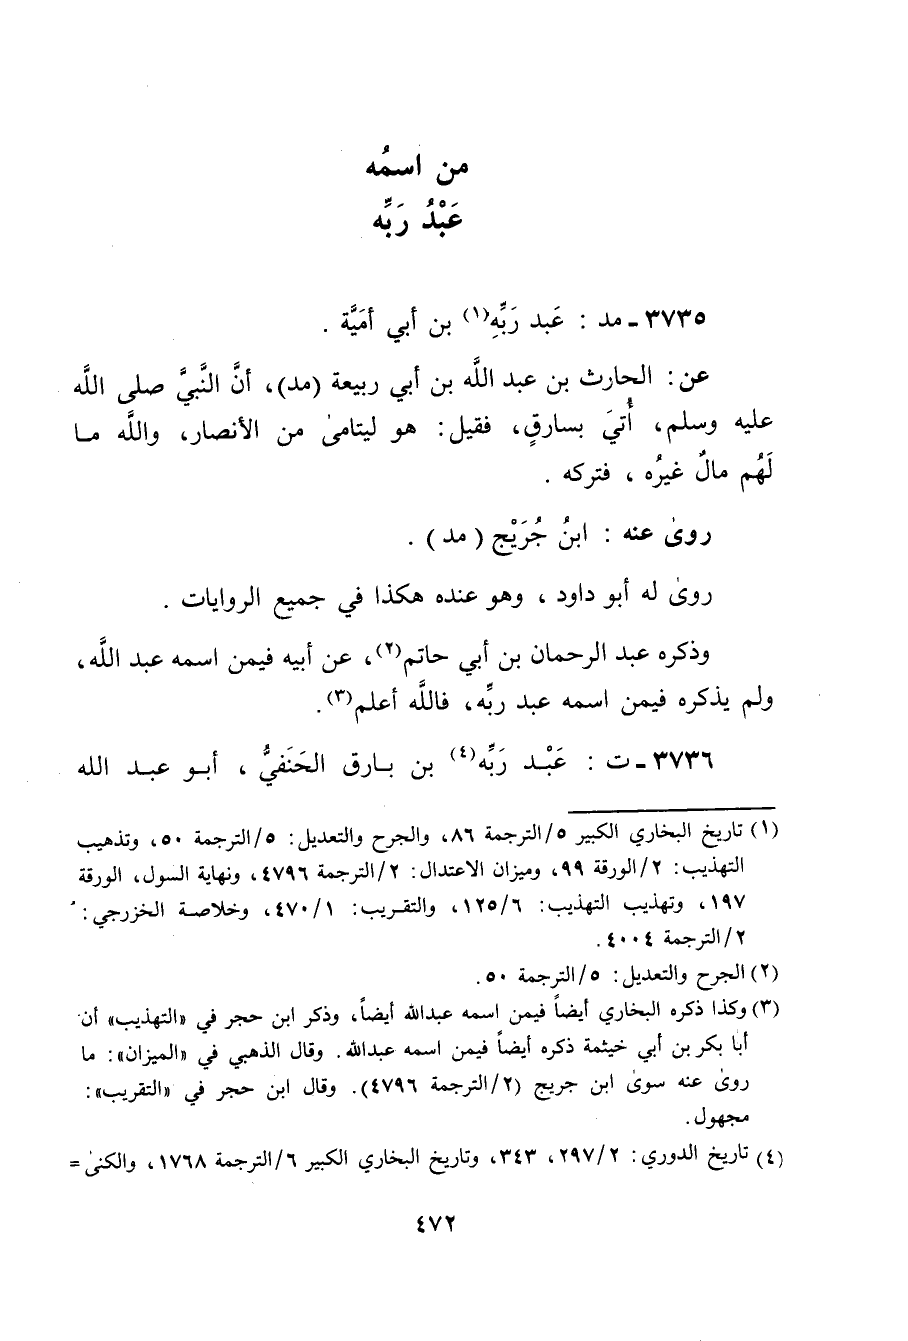 من اسمُه
عَبْدُ رَبِّه
٣٧٣٥ ـ مد : عَبد رَبِّهِ(١) بن أبي أمَيَّة .
عن : الحارث بن عبد اللَّه بن أبي ربيعة (مد)، أنَّ النَّبيَّ صلى اللَّه
عليه وسلم، أُتيَ بسارقٍ، فقيل : هو ليتامىٰ من الأنصار، واللَّه ما
لَهُم مالٌ غيرُه ، فتركه .
روىٰ عنه : ابنُ جُرَيْج ( مد ) .
روىٰ له أبو داود ، وهو عنده هكذا في جميع الروايات .
وذكره عبد الرحمان بن أبي حاتم(٢)، عن أبيه فيمن اسمه عبد اللَّه،
ولم يذكره فيمن اسمه عبد ربِّه، فاللَّه أعلم(٣).
٣٧٣٦ ـ ت : عَبْد رَبِّه(٤) بن بارق الحَنَفيُّ ، أبو عبد الله
(١) تاريخ البخاري الكبير ٥/الترجمة ٨٦، والجرح والتعديل: ٥/الترجمة ٥٠، وتذهيب
التهذيب: ٢/الورقة ٩٩، وميزان الاعتدال: ٢/الترجمة ٤٧٩٦، ونهاية السول، الورقة
١٩٧، وتهذيب التهذيب: ١٢٥/٦، والتقريب: ٤٧٠/١، وخلاصة الخزرجي:
٢/الترجمة ٤٠٠٤.
(٢) الجرح والتعديل: ٥/الترجمة ٥٠.
(٣) وكذا ذكره البخاري أيضاً فيمن اسمه عبدالله أيضاً، وذكر ابن حجر في «التهذيب» أن
أبا بكر بن أبي خيثمة ذكره أيضاً فيمن اسمه عبدالله. وقال الذهبي في «الميزان»: ما
روىٰ عنه سوىٰ ابن جريج (٢/الترجمة ٤٧٩٦). وقال ابن حجر في «التقريب»:
مجهول.
(٤) تاريخ الدوري: ٢٩٧/٢، ٣٤٣، وتاريخ البخاري الكبير ٦/الترجمة ١٧٦٨، والكنىٰ =
٤٧٢